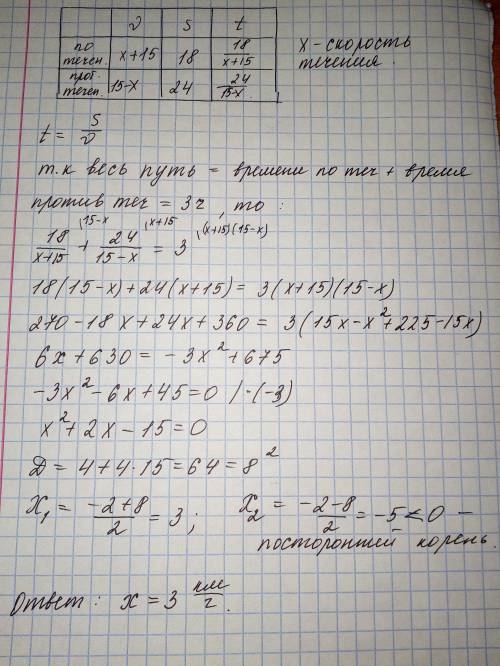 v S t
по течен. x+15 18 18/(x+15)
прот. течен. 15-x 24 24/(15-x)
x - скорость
течения.
t = S/v
т.к весь путь = времени по теч + время
против теч = 3ч, то:
18/(x+15) \15-x + 24/(15-x) \x+15 = 3 \(x+15)(15-x)
18(15-x)+24(x+15) = 3(x+15)(15-x)
270-18x+24x+360 = 3(15x-x²+225-15x)
6x+630 = -3x²+675
-3x²-6x+45=0 /·(-3)
x²+2x-15=0
Д = 4+4·15=64=8²
X₁ = (-2+8)/2 = 3; X₂ = (-2-8)/2 = -5<0 -
посторонний корень.
Ответ: x = 3 км/ч.